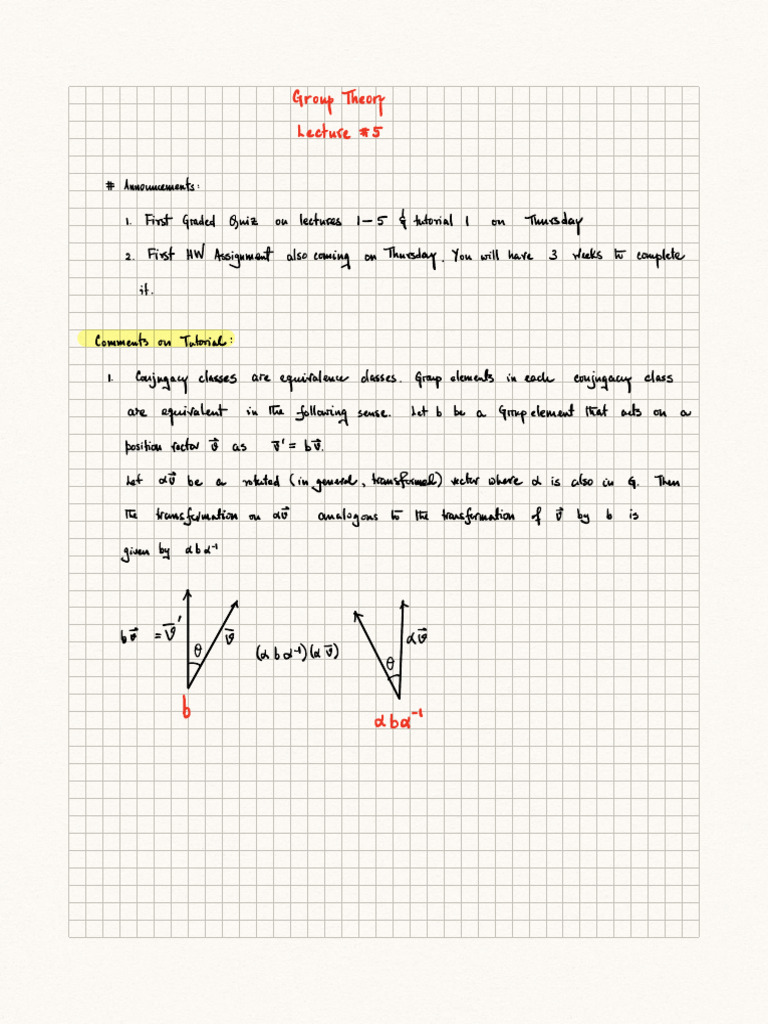 Group Theory
Lecture #5
# Announcements:
1. First Graded Quiz on lectures 1-5 & tutorial 1 on Thursday
2. First HW Assignment also coming on Thursday. You will have 3 weeks to complete
it.
Comments on Tutorial:
1. Conjugacy classes are equivalence classes. Group elements in each conjugacy class
are equivalent in the following sense. Let b be a Group element that acts on a
position vector v⃗ as v⃗' = bv⃗.
Let αv⃗ be a rotated (in general, transformed) vector where α is also in G. Then
the transformation on αv⃗ analogous to the transformation of v⃗ by b is
given by αbα⁻¹
bv⃗ = v⃗' θ v⃗ (αbα⁻¹)(αv⃗) θ αv⃗
b αbα⁻¹